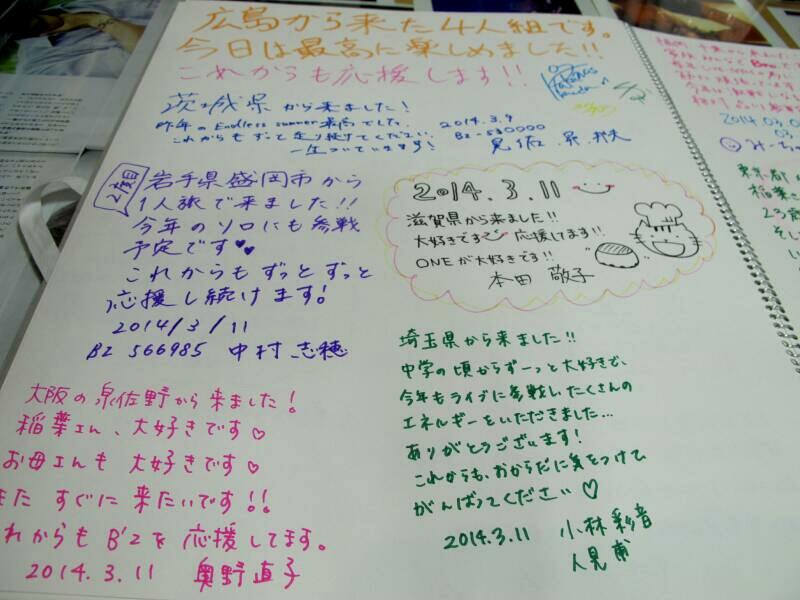 広島から来た4人組です。
今日は最高に楽しめました!!
これからも応援します!!
茨城県から来ました!
昨年のEndless summer来高でした。 2014.3.9
これからもずっと走り続けてください。 BZ-530000
一生ついていきます!
2度目
岩手県盛岡市から
1人旅で来ました!!
今年のソロにも参戦
予定です♥♥
これからもずっとずっと
応援し続けます!
2014/3/11
BZ 566985 中村志穂
2014.3.11
滋賀県から来ました!!
大好きです 応援してます!!
ONEが大好きです!!
本田 敬子
埼玉県から来ました!!
中学の頃からずーっと大好きで、
今年もライブに参戦し、たくさんの
エネルギーをいただきました…
ありがとうございます!
これからも、おからだに気をつけて
がんばってください♡
2014.3.11 小林彩音
人見
大阪の泉佐野から来ました!
稲葉さん、大好きです♡
お母さんも大好きです♡
また すぐに来たいです!!
れからも B'zを応援してます。
2014.3.11 奥野直子
2014.03.0
東京都
稲葉さ
23歳
そし